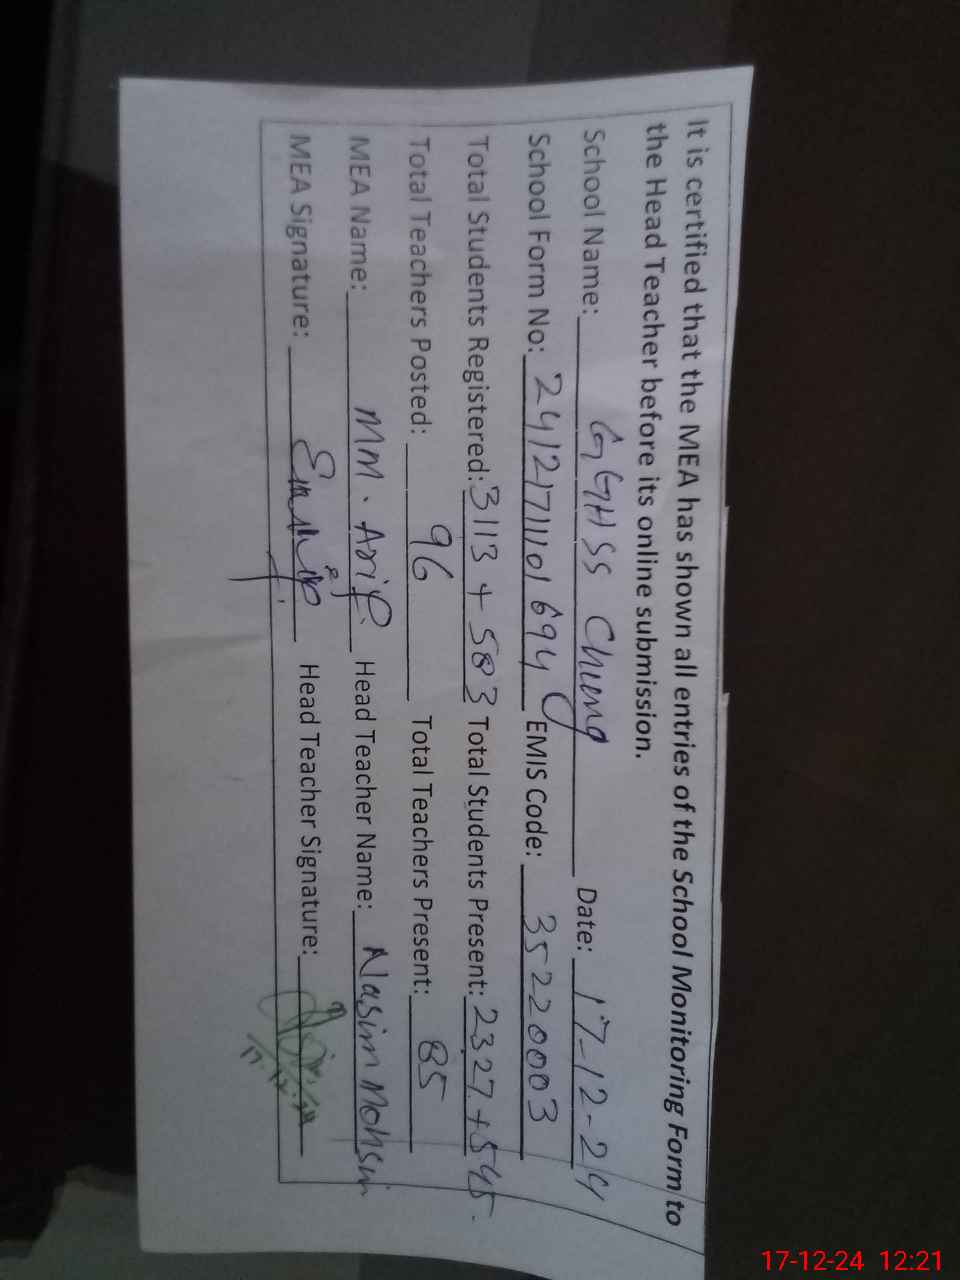 It is certified that the MEA has shown all entries of the School Monitoring Form to
the Head Teacher before its online submission.
School Name: GGHSS Chung Date: 17-12-24
School Form No: 24121711101694 EMIS Code: 35220003
Total Students Registered: 3113 + 583 Total Students Present: 2327 + 545
Total Teachers Posted: 96 Total Teachers Present: 85
MEA Name: MM. Arif Head Teacher Name: Nasim Mohsin
MEA Signature: Head Teacher Signature:
17-12-24 12:21